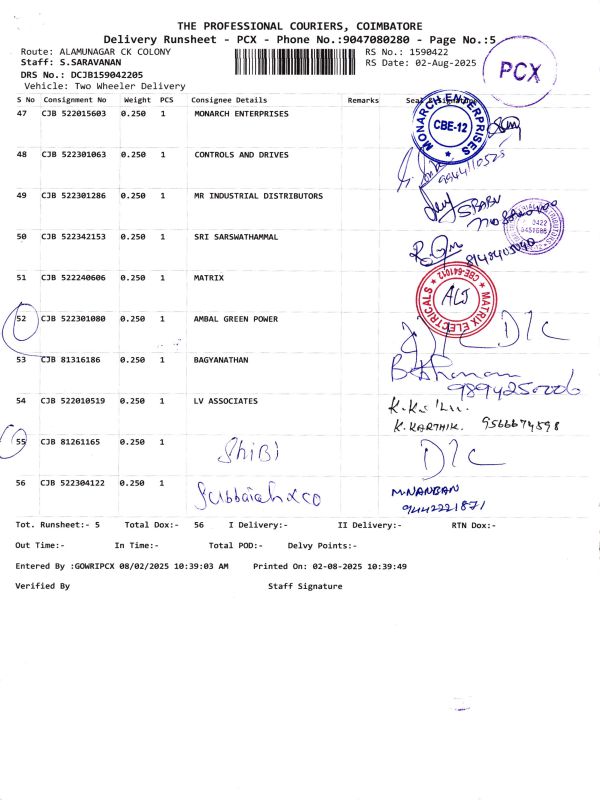 THE PROFESSIONAL COURIERS, COIMBATORE
Delivery Runsheet - PCX - Phone No.:9047080280 - Page No.:5
Route: ALAMUNAGAR CK COLONY RS No.: 1590422
Staff: S.SARAVANAN RS Date: 02-Aug-2025
DRS No.: DCJB159042205
Vehicle: Two Wheeler Delivery
PCX
S No Consignment No Weight PCS Consignee Details Remarks Seal & Signature
47 CJB 522015603 0.250 1 MONARCH ENTERPRISES
MONARCH ENTERPRISES CBE-12
48 CJB 522301063 0.250 1 CONTROLS AND DRIVES
49 CJB 522301286 0.250 1 MR INDUSTRIAL DISTRIBUTORS
SBABU
50 CJB 522342153 0.250 1 SRI SARSWATHAMMAL
51 CJB 522240606 0.250 1 MATRIX
MATRIX ELECTRICALS CBE-641012
52 CJB 522301080 0.250 1 AMBAL GREEN POWER D/C
53 CJB 81316186 0.250 1 BAGYANATHAN
9894250006
54 CJB 522010519 0.250 1 LV ASSOCIATES
K.KARTHIK. 9566674598
55 CJB 81261165 0.250 1 ShiBi D/C
56 CJB 522304122 0.250 1 Subbaiah & co M.NANBAN
9442221871
Tot. Runsheet:- 5 Total Dox:- 56 I Delivery:- II Delivery:- RTN Dox:-
Out Time:- In Time:- Total POD:- Delvy Points:-
Entered By :GOWRIPCX 08/02/2025 10:39:03 AM Printed On: 02-08-2025 10:39:49
Verified By Staff Signature